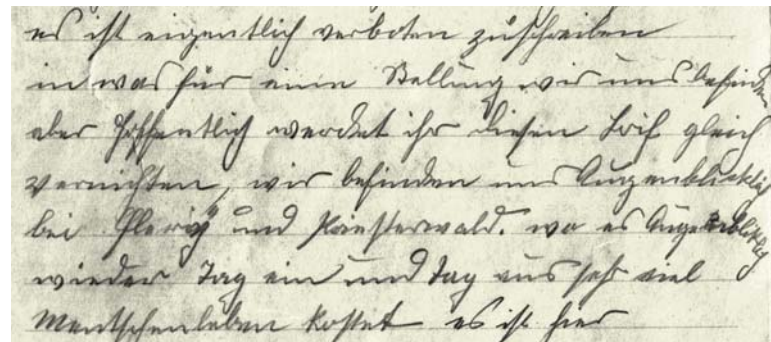 es ist eigentlich verboten zuschreiben
in was für eine Stellung wir uns befinden
aber hoffentlich werdet ihr diesen Brif gleich
vernichten, wir befinden uns Augenblicklich
bei Flerig und Priesterwald. wo es Augenblicklig
wieder Tag ein und Tag aus sehr viel
Mentschenleben kostet es ist hier